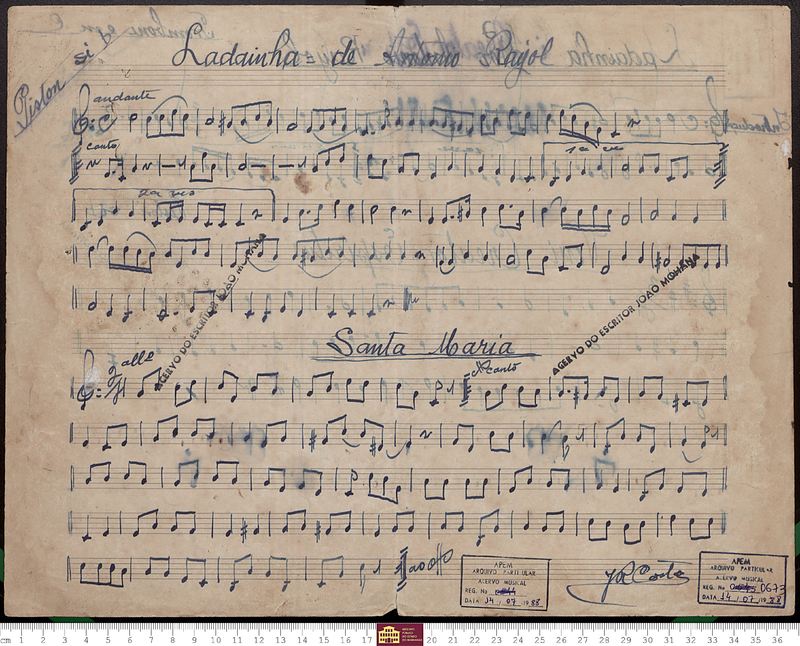 Piston si
Ladainha de Antonio Rajol
andante
canto
1a vez
2a vez
ACERVO DO ESCRITOR JOÃO MOHANA
ACERVO DO ESCRITOR JOÃO MOHANA
Santa Maria
canto
APEM
ARQUIVO PARTICULAR
ACERVO MUSICAL
REG. No
DATA 14 / 07 / 1988
APEM
ARQUIVO PARTICULAR
ACERVO MUSICAL
REG. No 0673
DATA 14 / 07 / 1988
cm 1 2 3 4 5 6 7 8 9 10 11 12 13 14 15 16 17 18 20 21 22 23 24 25 26 27 28 29 30 31 32 33 34 35 36